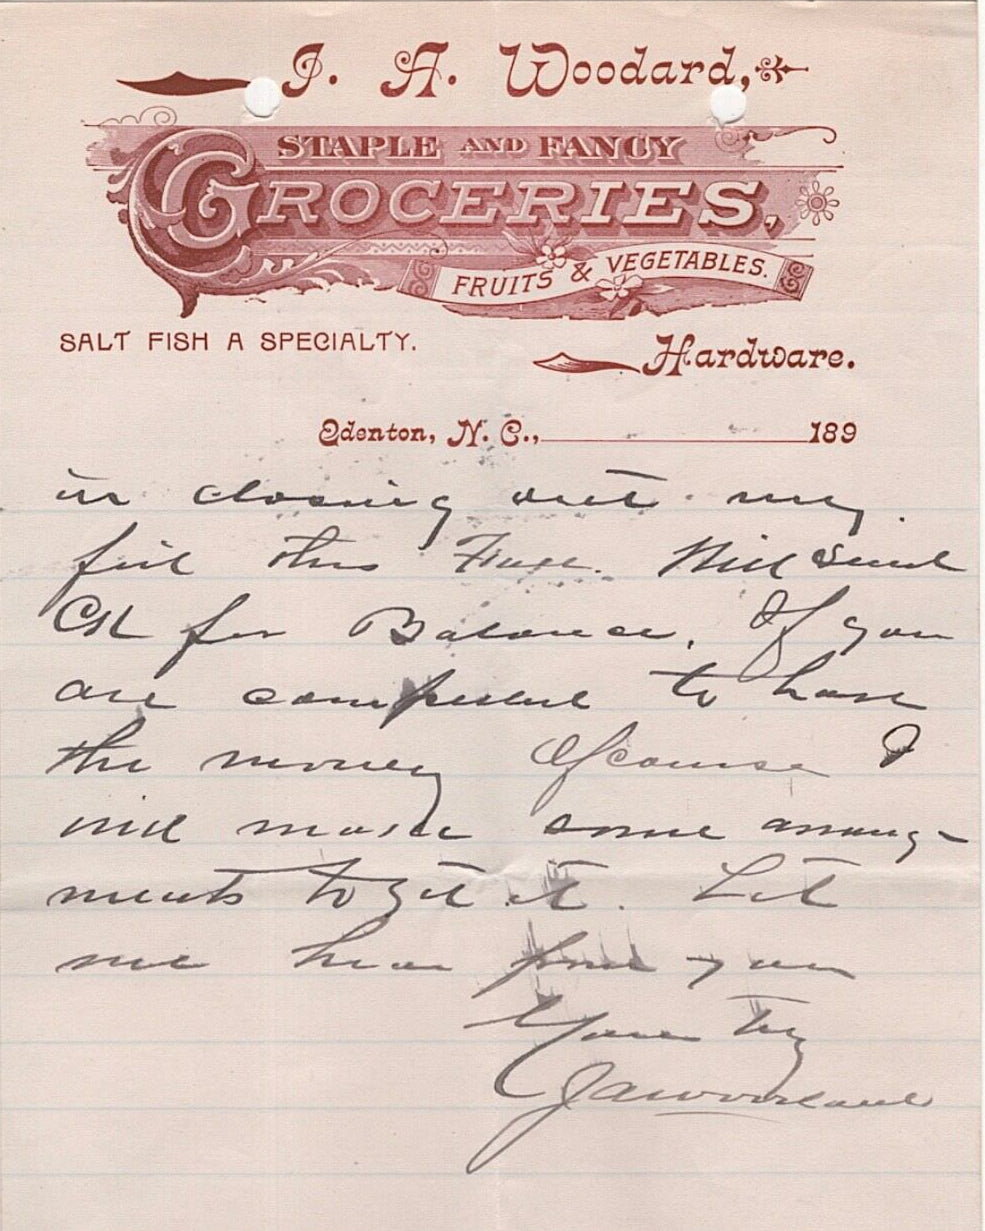 J. A. Woodard,
STAPLE AND FANCY
GROCERIES,
FRUITS & VEGETABLES.
SALT FISH A SPECIALTY.
Hardware.
Edenton, N. C., 189
in closing out my
this Will Send
Ck for Balance. If you
are compelled to have
the money Of course I
will make some arrang-
ments to get it. Let
me hear from you
Yours Try
JAWoodard